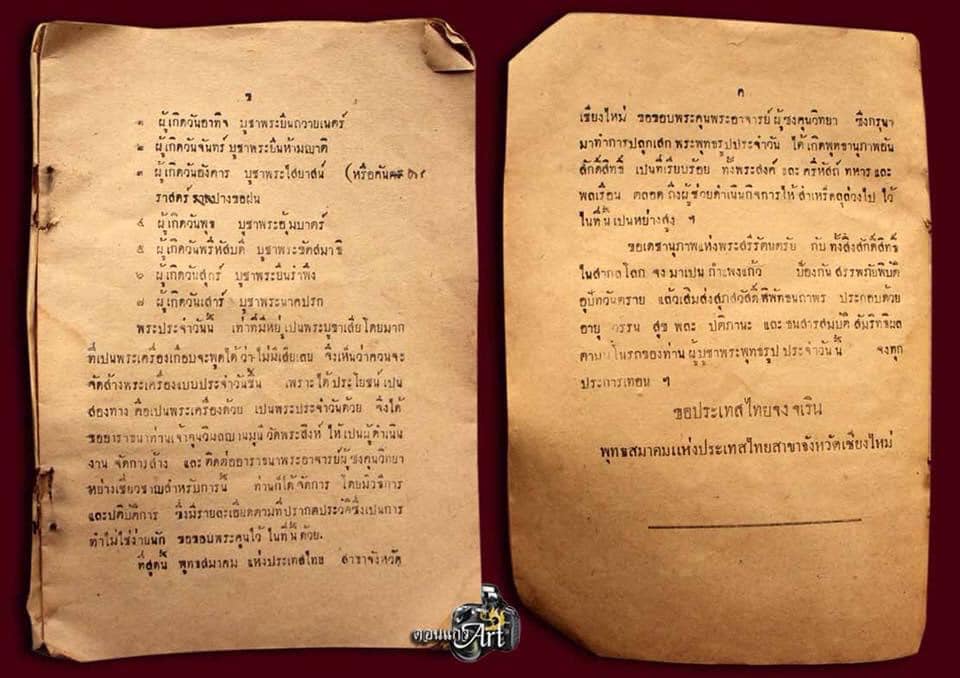 ข
๑ ผู้เกิดวันอาทิจ บูชาพระยืนถวายเนตร์
๒ ผู้เกิดวันจันทร์ บูชาพระยืนห้ามญาติ
๓ ผู้เกิดวันอังคาร บูชาพระไสยาสน์ (หรือคันธา
ราสตร์ ปางขอฝน
๔ ผู้เกิดวันพุธ บูชาพระอุ้มบาตร์
๕ ผู้เกิดวันพรึหัสบดี บูชาพระขัดสมาธิ
๖ ผู้เกิดวันสุกร์ บูชาพระยืนรำพึง
๗ ผู้เกิดวันเสาร์ บูชาพระนาคปรก
พระประจำวันนี้ เท่าที่มีหยู่เปนพระบูชาเสียโดยมาก
ที่เปนพระเครื่องเกือบจะพูดได้ว่าไม่มีเสียเลย จึงเห็นว่าควนจะ
จัดส้างพระเครื่องแบบประจำวันขึ้น เพราะได้ประโยชน์เปน
สองทาง คือเปนพระเครื่องด้วย เปนพระประจำวันด้วย จึงได้
ขออาราธนาท่านเจ้าคุนวิมลญานมุนี วัดพระสิงห์ ให้เปนผู้ดำเนิน
งาน จัดการส้าง และติดต่ออาราธนาพระอาจารย์ผู้ซงคุนวิทยา
หย่างเชี่ยวชาญสำหรับการนี้ ท่านก็ได้จัดการ โดยมีวิธีการ
และปติบัติการ ซึ่งมีรายละเอียดตามที่ปรากตประวัติซึ่งเปนการ
ทำไม่ไช่ง่ายนัก ขอขอบพระคุนไว้ ในที่นี้ด้วย.
ที่สุดนี้ พุทธสมาคม แห่งประเทสไทย สาขาจังหวัด
ค
เชียงใหม่ ขอขอบพระคุนพระอาจารย์ผู้ซงคุนวิทยา ซึ่งกรุนา
มาทำการปลุกเสก พระพุทธรูปประจำวัน ได้เกิดพุทธานุภาพอัน
สักดิ์สิทธิ์ เปนที่เรียบร้อย ทั้งพระสงค์ และ ครึหัสถ์ ทหาร และ
พลเรือน ตลอด ถึงผู้ช่วยดำเนินกิจการให้ สำเหร็ดลุล่วงไป ไว้
ในที่นี้เปนหย่างสูง ฯ
ขอเดชานุภาพแห่งพระสรีรัตนตรัย กับ ทั้งสิ่งสักดิ์สิทธิ์
ในสากลโลก จงมาเปน กำแพงแก้ว ป้องกัน สรรพภัยพิบัติ
อุปัทวันตราย แล้วเสิมส่งสุภสวัสดิ์พิพัธนถาพร ประกอบด้วย
อายุ วรรน สุข พละ ปติภานะ และ ธนสารสมบัติ สัมริทธิผล
มโนรถของท่าน ผู้บูชาพระพุทธรูป ประจำวันนี้ จงทุก
ประการเทอน ฯ
ขอประเทสไทยจงจเริน
พุทธสมาคมแห่งประเทสไทยสาขาจังหวัดเชียงใหม่
ดอนแก้ว Art